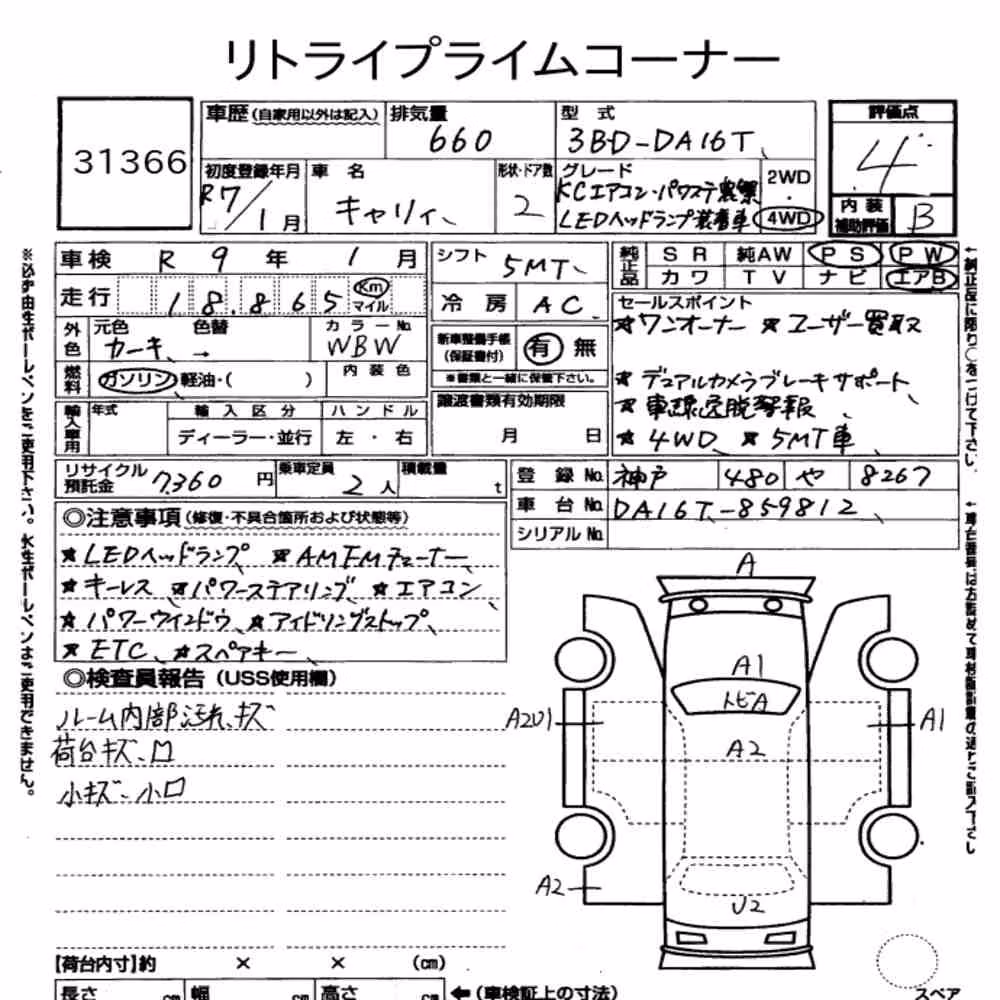 リトライプライムコーナー
31366
車歴(自家用以外は記入)
排気量
660
型式
3BD-DA16T
評価点
4
初度登録年月
R7/1月
車名
キャリィ
形状・ドア数
2
グレード
KCエアコン・パワステ農繁
LEDヘッドランプ装着車
2WD
・
4WD
内装
補助評価
B
車検 R 9年 1月
シフト
5MT
純正品
SR 純AW PS PW
カワ TV ナビ エアB
走行 18,865 Km マイル
冷房 AC
セールスポイント
★ワンオーナー ★ユーザー買取
★デュアルカメラブレーキサポート
★車線逸脱警報
★4WD ★5MT車
外色
元色 色替
カーキ →
カラーNo.
WBW
新車整備手帳
(保証書付)
有 無
※書類と一緒に保管下さい。
燃料
ガソリン・軽油・( )
内装色
輸入車用
年式
輸入区分
ディーラー・並行
ハンドル
左・右
譲渡書類有効期限
月 日
リサイクル
預託金
7,360円
乗車定員
2人
積載量
t
登録No. 神戸 480 や 8267
車台No. DA16T-859812
シリアルNo.
◎注意事項(修復・不具合箇所および状態等)
★LEDヘッドランプ ★AMFMチューナー
★キーレス ★パワーステアリング ★エアコン
★パワーウインドウ ★アイドリングストップ
★ETC ★スペアキー
◎検査員報告(USS使用欄)
ルーム内部汚れ、キズ
荷台キズ、凹
小キズ、小凹
A
A1
トビA
A2U1
A1
A2
A2
U2
【荷台内寸】約 × × (cm)
長さ cm 幅 cm 高さ cm ←(車検証上の寸法)
スペア
※必ず油性ボールペンをご使用下さい。水性ボールペンはご使用できません。
←純正品に限り○をつけて下さい。